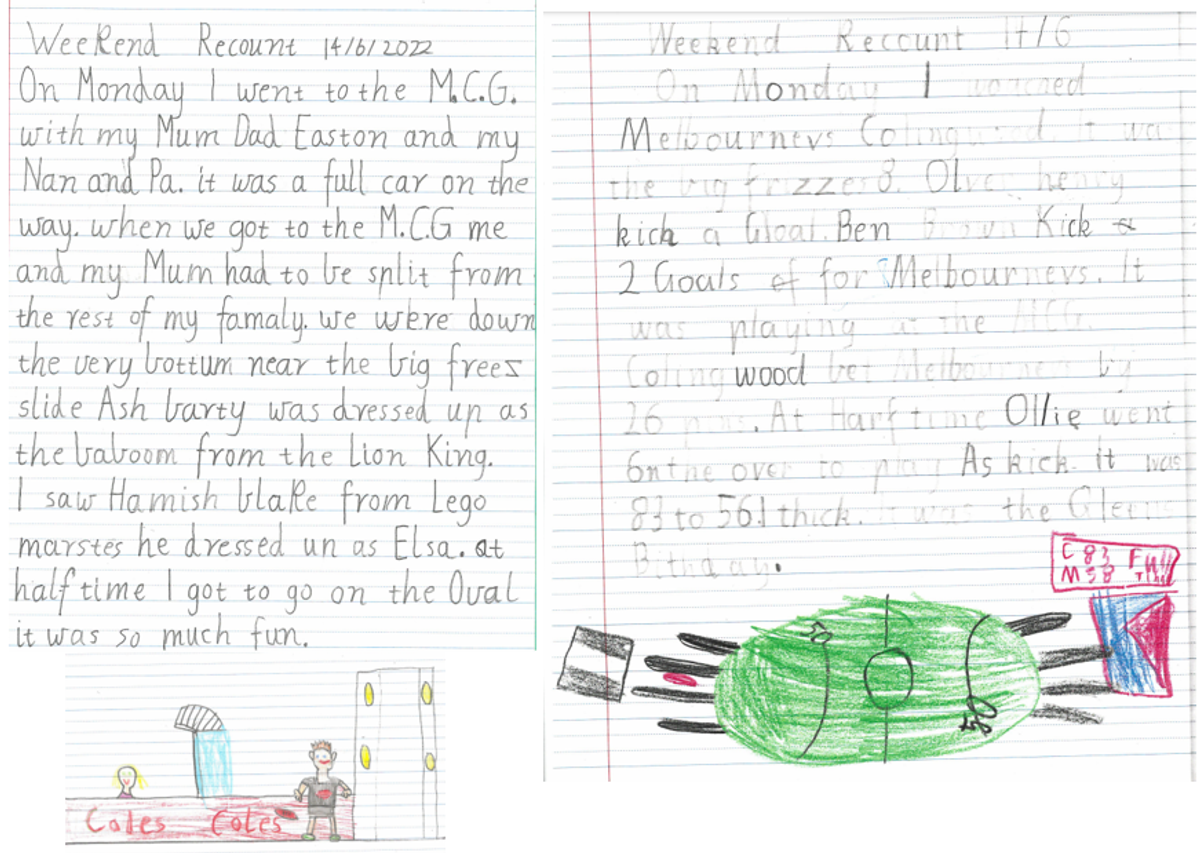 Weekend Recount 14/6/2022
On Monday I went to the M.C.G.
with my Mum Dad Easton and my
Nan and Pa. it was a full car on the
way. when we got to the M.C.G me
and my Mum had to be split from
the rest of my famaly. we were down
the very bottum near the big freez
slide Ash barty was dressed up as
the baboom from the Lion King.
I saw Hamish blake from Lego
marstes he dressed up as Elsa. at
half time I got to go on the Oval
it was so much fun.
Coles Coles
Weekend Recount 14/6
On Monday I
Melbournevs Colingwood. It was
the big frizzers 8. Olver henry
kick a Gloal. Ben Brown Kick
2 Goals for Melbournevs. It
was playing at the MCG.
Colingwood bet Melbournevs by
26 pins. At Harf time Ollie went
on the over to play As kick it was
83 to 56.I thick. It was the
Bithday.
C 83 Full
M 58 Time
50
50